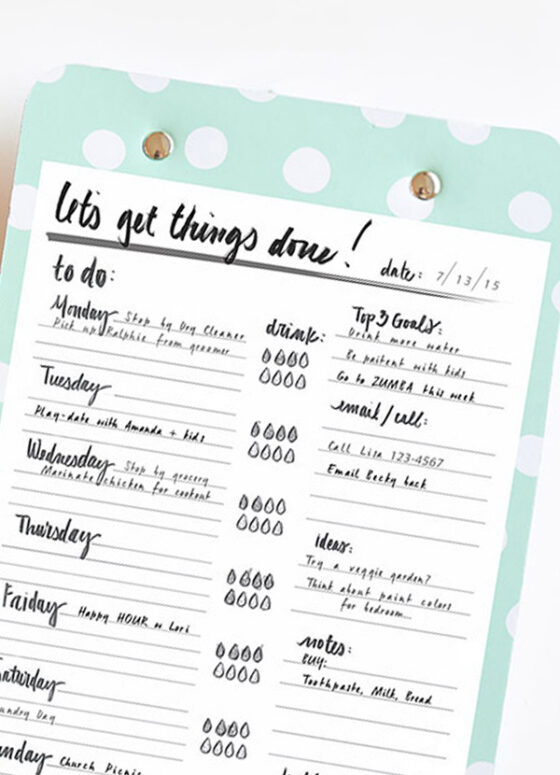 let's get things done!
date: 7/13/15
to do:
Monday Shop by Dry Cleaner
Pick up Ralphie from groomer
Tuesday
Play-date with Amanda + kids
Wednesday Shop by grocery
Marinate chicken for cookout
Thursday
Friday Happy HOUR w Lori
aturday
undry Day
nday Church Picnic
drink:
Top 3 Goals:
Drink more water
Be paitent with kids
Go to ZUMBA this week
email/call:
Call Lisa 123-4567
Email Becky back
ideas:
Try a veggie garden?
Think about paint colors
for bedroom...
notes:
BUY:
Toothpaste, Milk, Bread